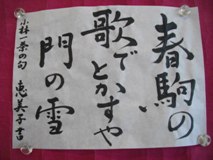 春駒の
歌でとかすや
門の雪
小林一茶の句
恵美子書